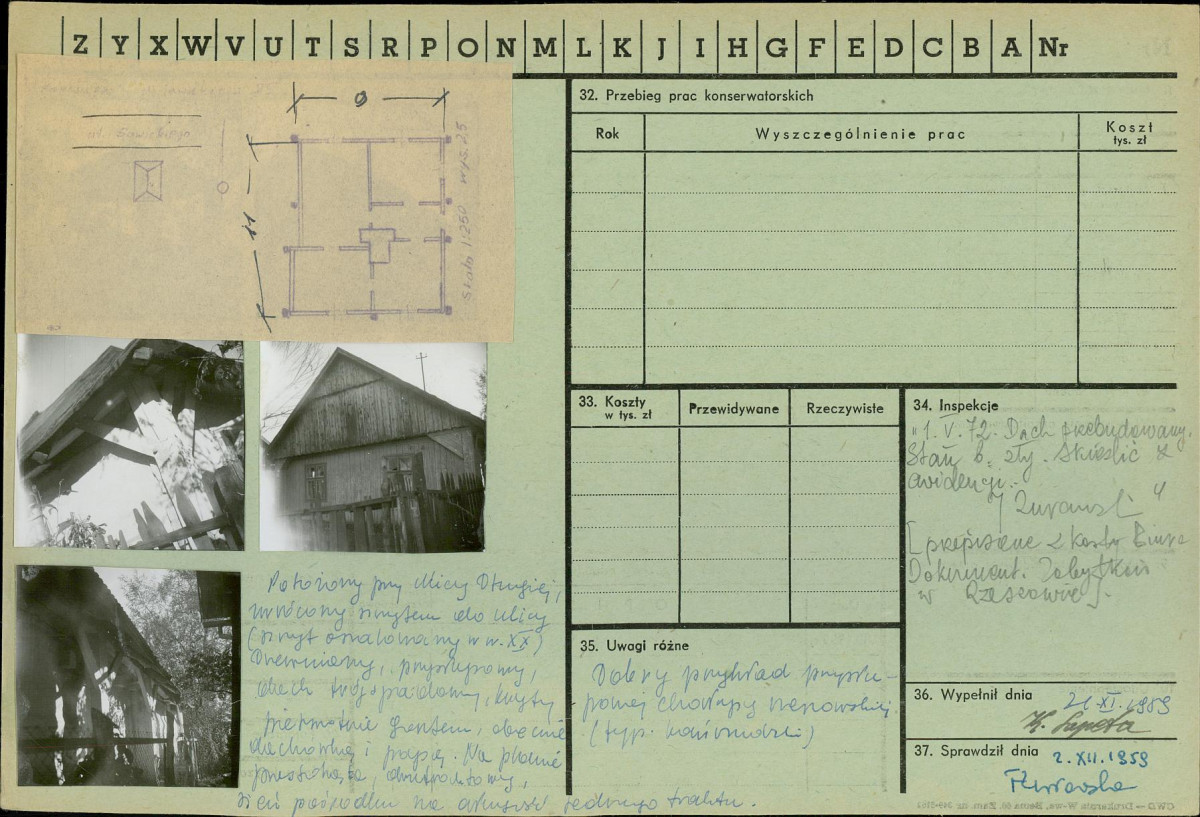 Z Y X W V U T S R P O N M L K J I H G F E D C B A Nr
ul. Sawickiego
9
11
Skala 1:250 wys. 2,5
32. Przebieg prac konserwatorskich
Rok
Wyszczególnienie prac
Koszt
tys. zł
33. Koszty
w tys. zł
Przewidywane
Rzeczywiste
34. Inspekcje
"1.V.72. Dach przebudowany.
Stan b. zły. Skreślić z
ewidencji.
"
[przepisane z karty Biura
Dokument. Zabytków
w Rzeszowie].
35. Uwagi różne
Dobry przykład przysłu-
powej chałupy
(typ. )
36. Wypełnił dnia
21.XI.1959
37. Sprawdził dnia
2.XII.1959
Położony przy ulicy Długiej,
zwrócony szczytem do ulicy
(szczyt oszalowany w w. XX)
Drewniany, przysłupowy,
dach trójspadowy, kryty
pierwotnie gontem, obecnie
dachówką i papą. Na planie
prostokąta, dwutraktowy,
sień pośrodku na jednego traktu.